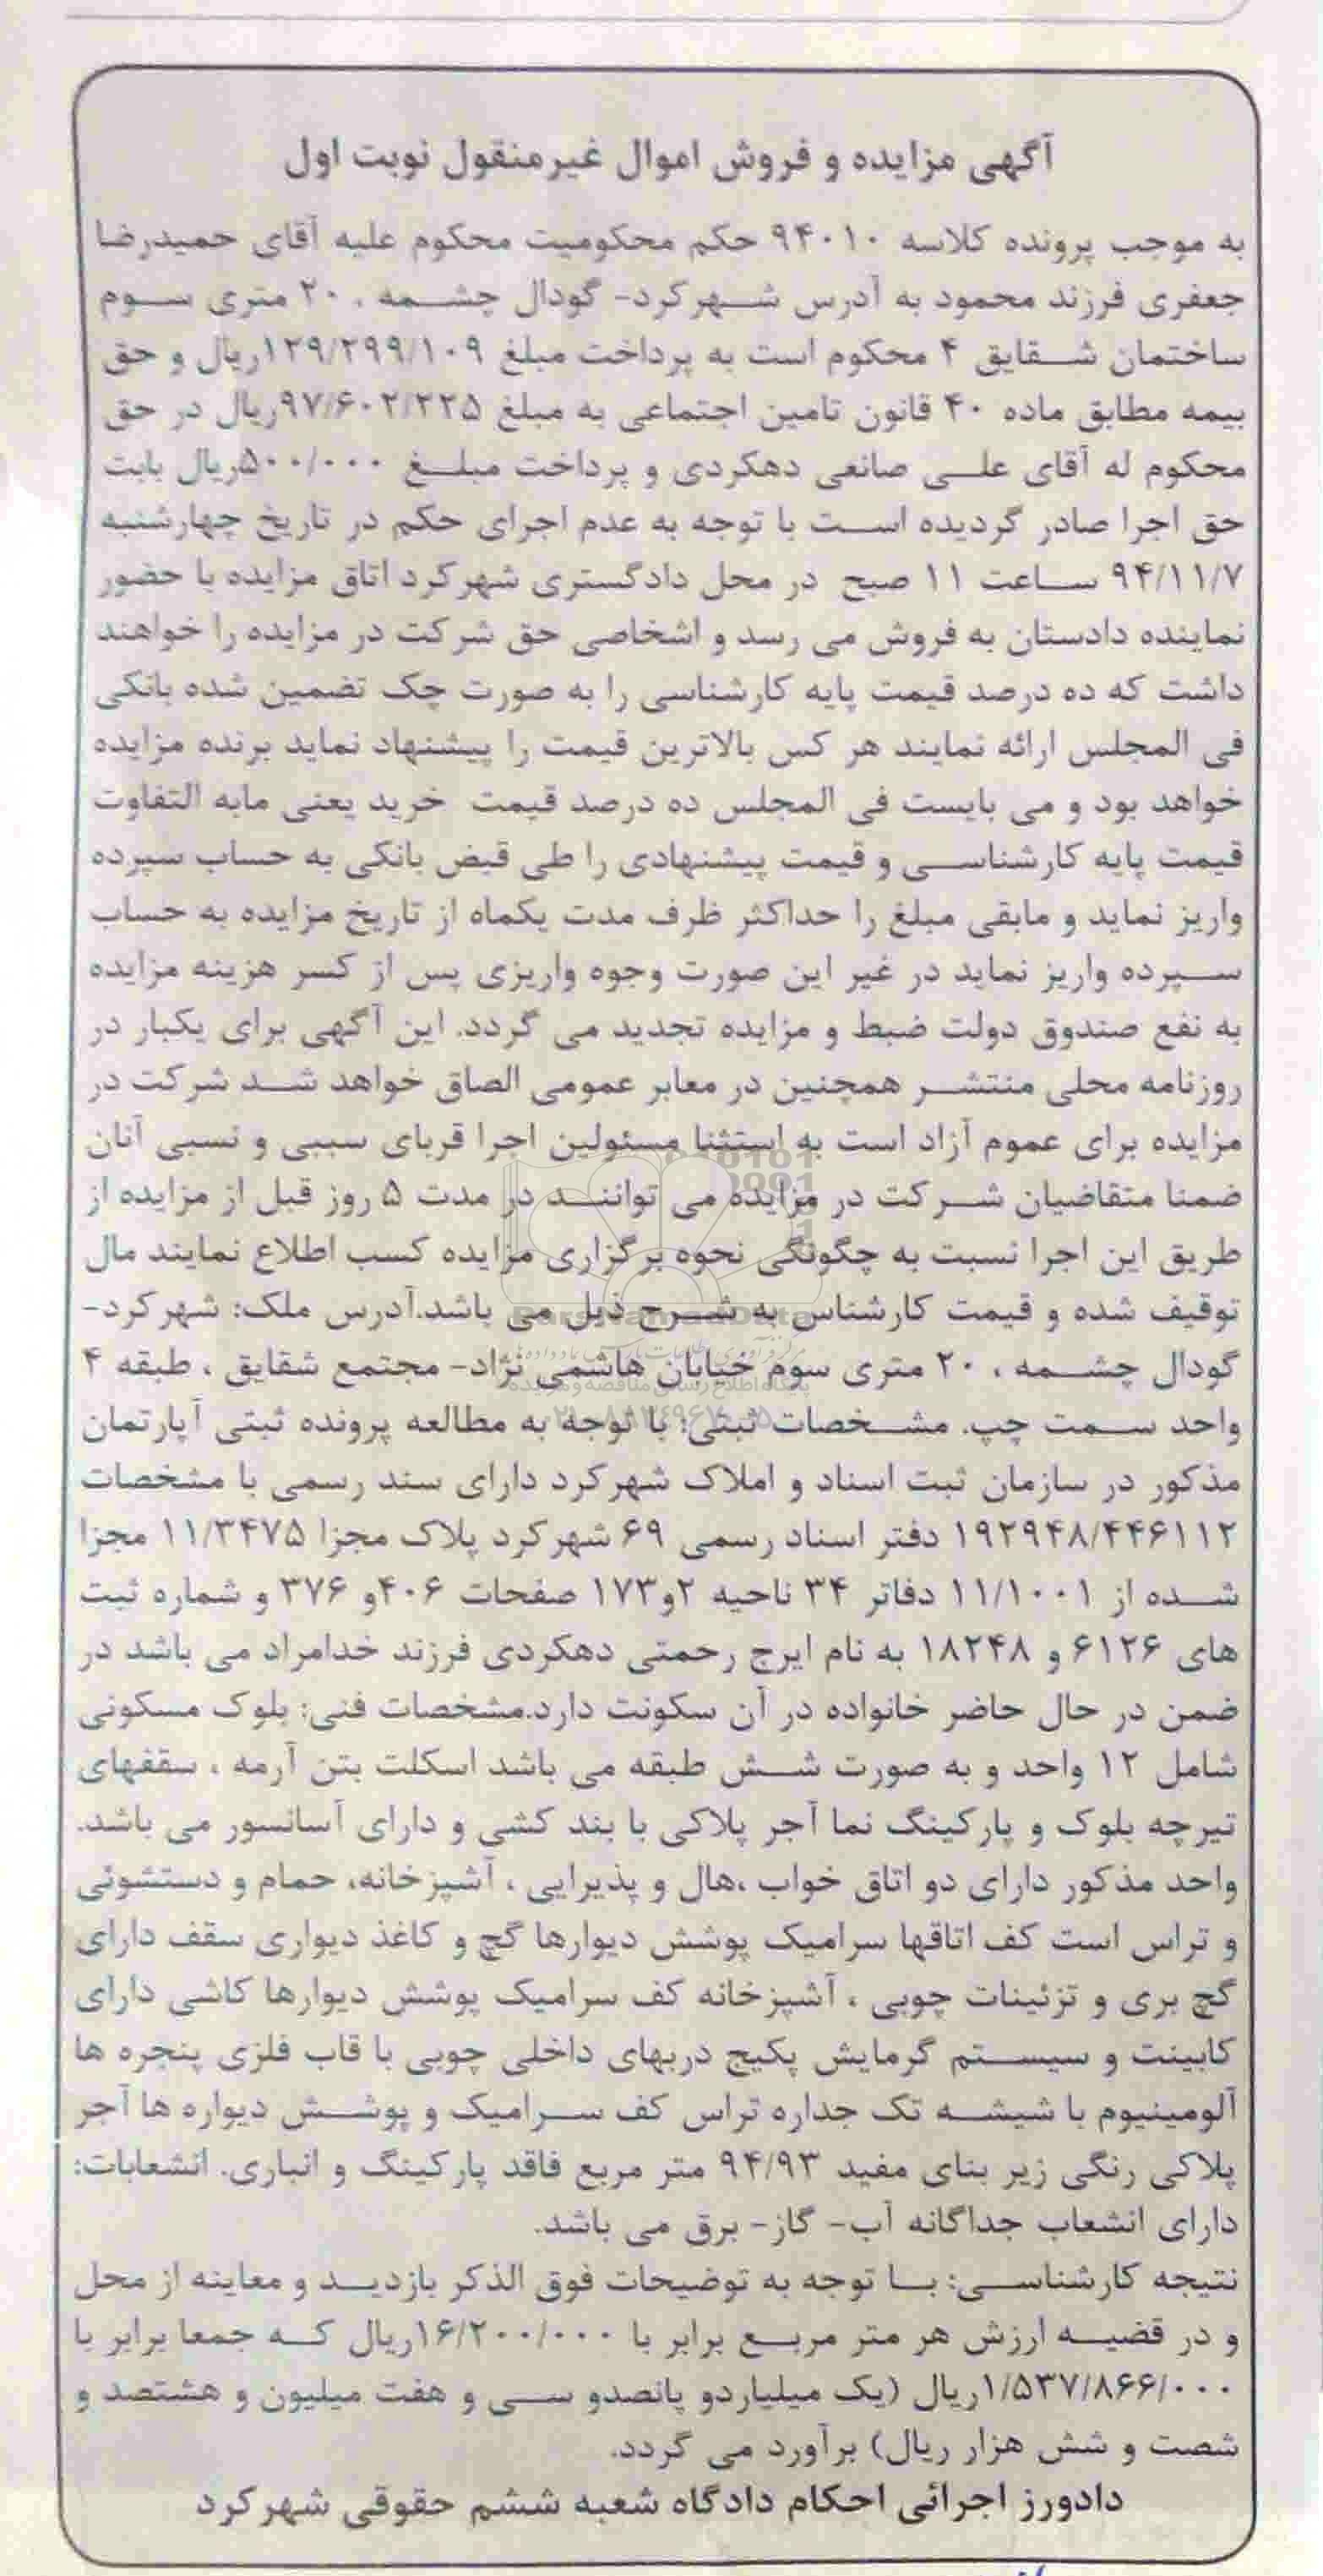 آگهی مزایده و فروش اموال غیرمنقول نوبت اول
به موجب پرونده کلاسه ۹۴۰۱۰ حکم محکومیت محکوم علیه آقای حمیدرضا
جعفری فرزند محمود به آدرس شهرکرد- گودال چشمه ، ۲۰ متری سوم
ساختمان شقایق ۴ محکوم است به پرداخت مبلغ ۱۲۹/۲۹۹/۱۰۹ریال و حق
بیمه مطابق ماده ۴۰ قانون تامین اجتماعی به مبلغ ۹۷/۶۰۲/۲۲۵ریال در حق
محکوم له آقای علی صانعی دهکردی و پرداخت مبلغ ۵۰۰/۰۰۰ریال بابت
حق اجرا صادر گردیده است با توجه به عدم اجرای حکم در تاریخ چهارشنبه
۹۴/۱۱/۷ ساعت ۱۱ صبح در محل دادگستری شهرکرد اتاق مزایده با حضور
نماینده دادستان به فروش می رسد و اشخاصی حق شرکت در مزایده را خواهند
داشت که ده درصد قیمت پایه کارشناسی را به صورت چک تضمین شده بانکی
فی المجلس ارائه نمایند هر کس بالاترین قیمت را پیشنهاد نماید برنده مزایده
خواهد بود و می بایست فی المجلس ده درصد قیمت خرید یعنی مابه التفاوت
قیمت پایه کارشناسی و قیمت پیشنهادی را طی قبض بانکی به حساب سپرده
واریز نماید و مابقی مبلغ را حداکثر ظرف مدت یکماه از تاریخ مزایده به حساب
سپرده واریز نماید در غیر این صورت وجوه واریزی پس از کسر هزینه مزایده
به نفع صندوق دولت ضبط و مزایده تجدید می گردد. این آگهی برای یکبار در
روزنامه محلی منتشر همچنین در معابر عمومی الصاق خواهد شد شرکت در
مزایده برای عموم آزاد است به استثنا مسئولین اجرا قربای سببی و نسبی آنان
ضمنا متقاضیان شرکت در مزایده می توانند در مدت ۵ روز قبل از مزایده از
طریق این اجرا نسبت به چگونگی نحوه برگزاری مزایده کسب اطلاع نمایند مال
توقیف شده و قیمت کارشناس به شرح ذیل می باشد.آدرس ملک: شهرکرد-
گودال چشمه ، ۲۰ متری سوم خیابان هاشمی نژاد- مجتمع شقایق ، طبقه ۴
واحد سمت چپ. مشخصات ثبتی: با توجه به مطالعه پرونده ثبتی آپارتمان
مذکور در سازمان ثبت اسناد و املاک شهرکرد دارای سند رسمی با مشخصات
۱۹۲۹۴۸/۴۴۶۱۱۲ دفتر اسناد رسمی ۶۹ شهرکرد پلاک مجزا ۱۱/۳۴۷۵ مجزا
شده از ۱۱/۱۰۰۱ دفاتر ۳۴ ناحیه ۲و۱۷۳ صفحات ۴۰۶و ۳۷۶ و شماره ثبت
های ۶۱۲۶ و ۱۸۲۴۸ به نام ایرج رحمتی دهکردی فرزند خدامراد می باشد در
ضمن در حال حاضر خانواده در آن سکونت دارد.مشخصات فنی: بلوک مسکونی
شامل ۱۲ واحد و به صورت شش طبقه می باشد اسکلت بتن آرمه ، سقفهای
تیرچه بلوک و پارکینگ نما آجر پلاکی با بند کشی و دارای آسانسور می باشد.
واحد مذکور دارای دو اتاق خواب ،هال و پذیرایی ، آشپزخانه، حمام و دستشوئی
و تراس است کف اتاقها سرامیک پوشش دیوارها گچ و کاغذ دیواری سقف دارای
گچ بری و تزئینات چوبی ، آشپزخانه کف سرامیک پوشش دیوارها کاشی دارای
کابینت و سیستم گرمایش پکیج دربهای داخلی چوبی با قاب فلزی پنجره ها
آلومینیوم با شیشه تک جداره تراس کف سرامیک و پوشش دیواره ها آجر
پلاکی رنگی زیر بنای مفید ۹۴/۹۳ متر مربع فاقد پارکینگ و انباری. انشعابات:
دارای انشعاب جداگانه آب- گاز- برق می باشد.
نتیجه کارشناسی: با توجه به توضیحات فوق الذکر بازدید و معاینه از محل
و در قضیه ارزش هر متر مربع برابر با ۱۶/۲۰۰/۰۰۰ریال که جمعا برابر با
۱/۵۳۷/۸۶۶/۰۰۰ریال (یک میلیاردو پانصدو سی و هفت میلیون و هشتصد و
شصت و شش هزار ریال) برآورد می گردد.
دادورز اجرائی احکام دادگاه شعبه ششم حقوقی شهرکرد